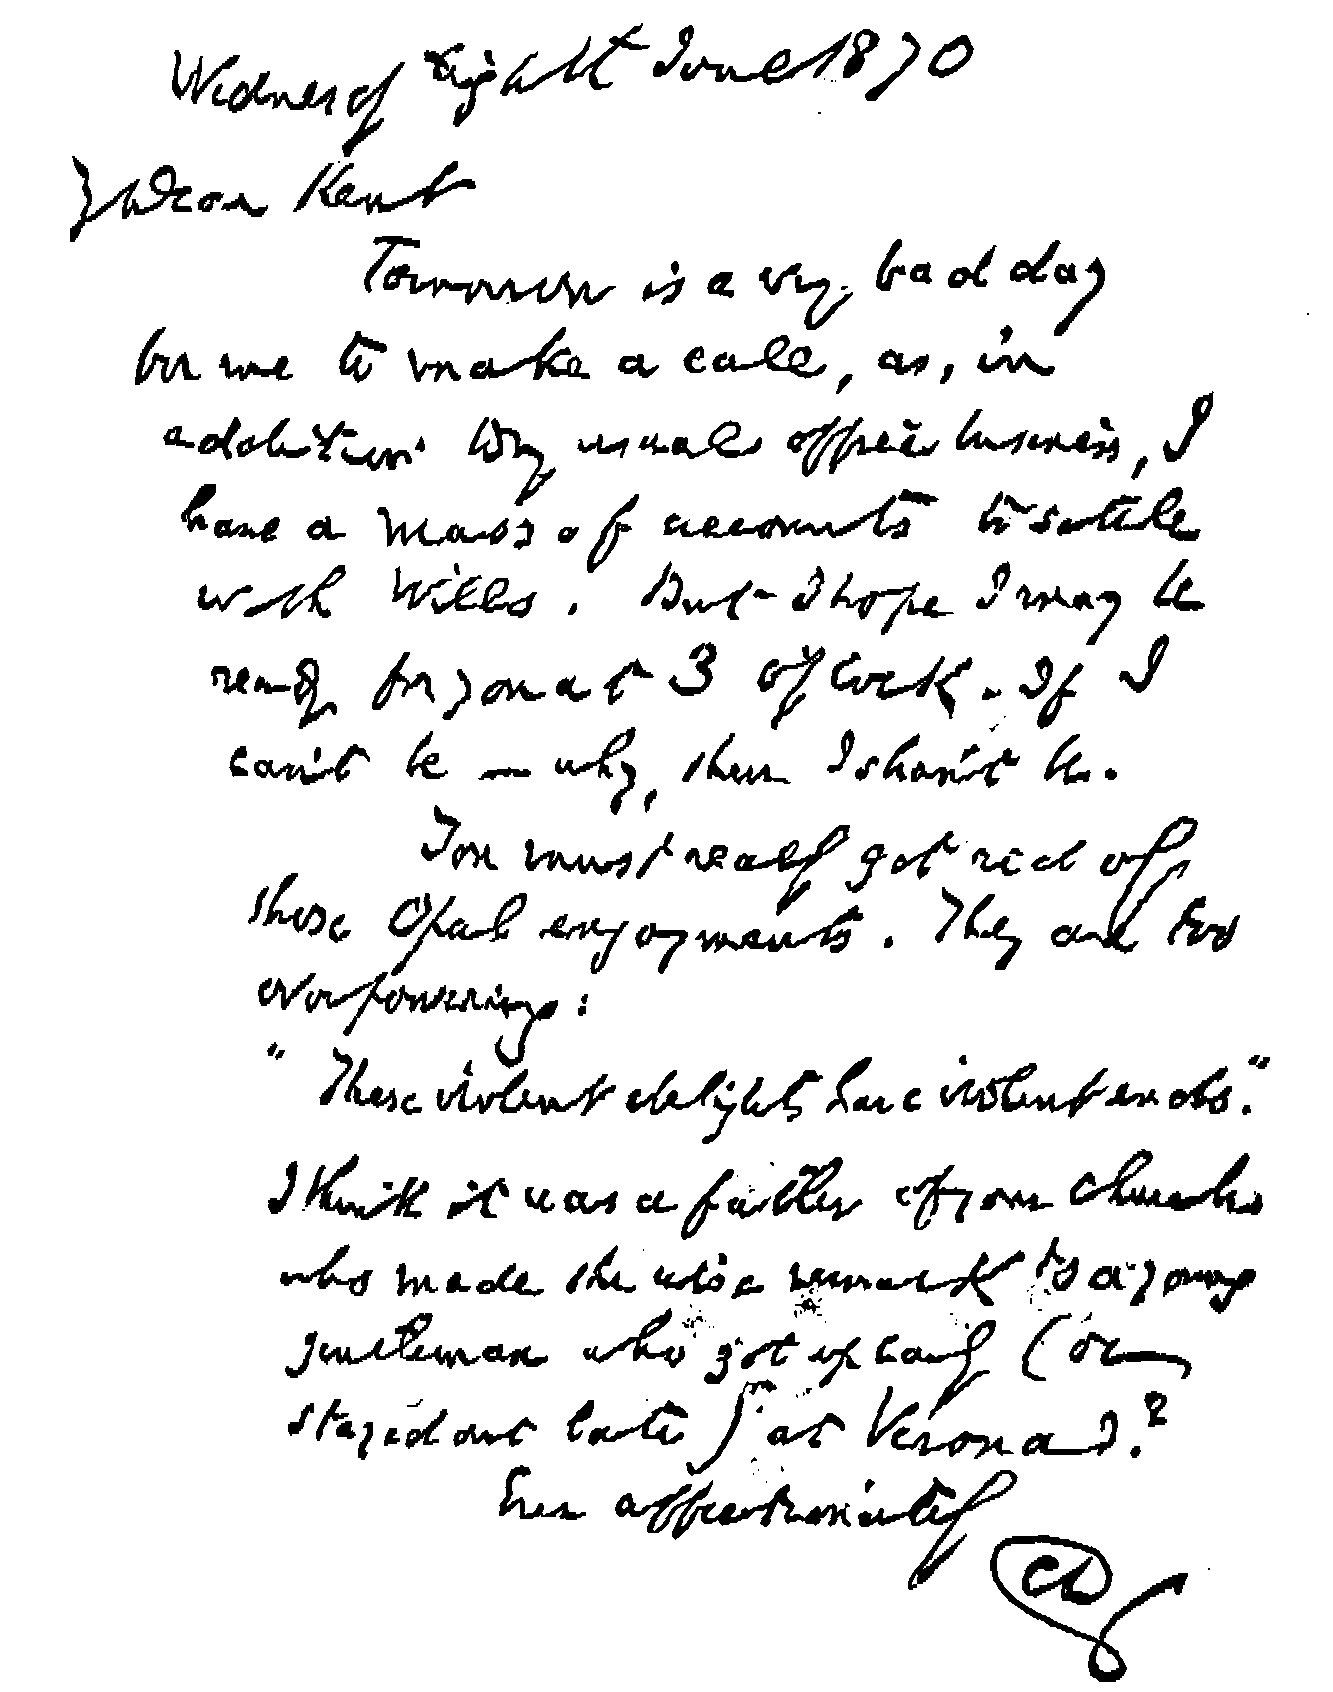 Wednesday Eighth June 1870
My Dear Kent
Tomorrow is a very bad day
for me to make a call, as, in
addition to my usual office business, I
have a mass of accounts to settle
with Wills. But I hope I may be
ready for you at 3 o'clock. If I
can't be — why, then I shan't be.
You must really get rid of
those Opal enjoyments. They are too
overpowering:
"These violent delights have violent ends."
I think it was a father of your church
who made the wise remark to a young
gentleman who got up early (or
stayed out late) at Verona?
Ever affectionately
CD